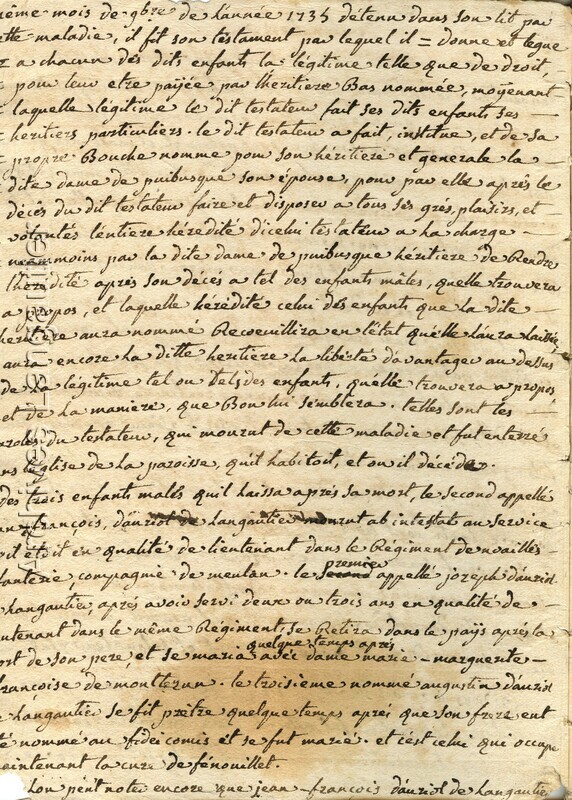 ième mois de 9bre de l'année 1735 détenu dans son lit par
ette maladie, il fit son testament par lequel il = donne et legue
a chacun des dits enfants la légitime telle que de droit,
pour leur etre païée par l'heritiere Bas nommée, moyenant
laquelle légitime le dit testateur fait ses dits enfants ses
heritiers particuliers. le dit testateur a fait, institue, et de sa
propre Bouche nomme pour son héritiere et generale la
dite dame de puibusque son épouse, pour par elle aprés le
décés du dit testateur faire et disposer a tous ses grés, plaisirs, et
volontés l'entiere hérédité d'icelui testateur a la charge
néammoins par la dite dame de puibusque héritiere de Rendre
l'hérédité aprés son décés a tel des enfants mâles, qu'elle trouvera
a propos, et laquelle hérédité celui des enfants que la dite
heritiere aura nommé Recoeuillira en l'état qu'elle l'aura laissée,
aura encore la ditte heritiere la liberté d'avantager au dessus
de la légitime tel ou tels des enfants, qu'elle trouvera a propos
et de la maniere, que Bon lui semblera. telles sont les
aroles du testateur, qui mourut de cette maladie et fut enterré
ns l'église de la paroisse, qu'il habitoit, et ou il décéda.
des trois enfants malls qu'il laissa aprés sa mort, le second appellé
an françois, d'auriol de langautier mourut ab intestat au service
il étoit en qualité de lieutenant dans le Régiment de noailles
fanterie compagnie de meulan. le second premier appellé jozeph d'auriol
langautier, aprés avoir servi deux ou trois ans en qualité de
utenant dans le même Régiment, se Retira dans le païs aprés la
ort de son pere, et se maria quelque temps aprés avec dame marie - marguerite
françoise de montlezun. le troisieme nommé augustin d'auriol
langautier se fit prêtre quelque temps aprés que son frere eut
té nommé au fideicomis et se fut marié. et c'est celui qui occupe
aintenant la cure de fénouillet.
l'on peut noter encore que jean-françois d'auriol de langautier